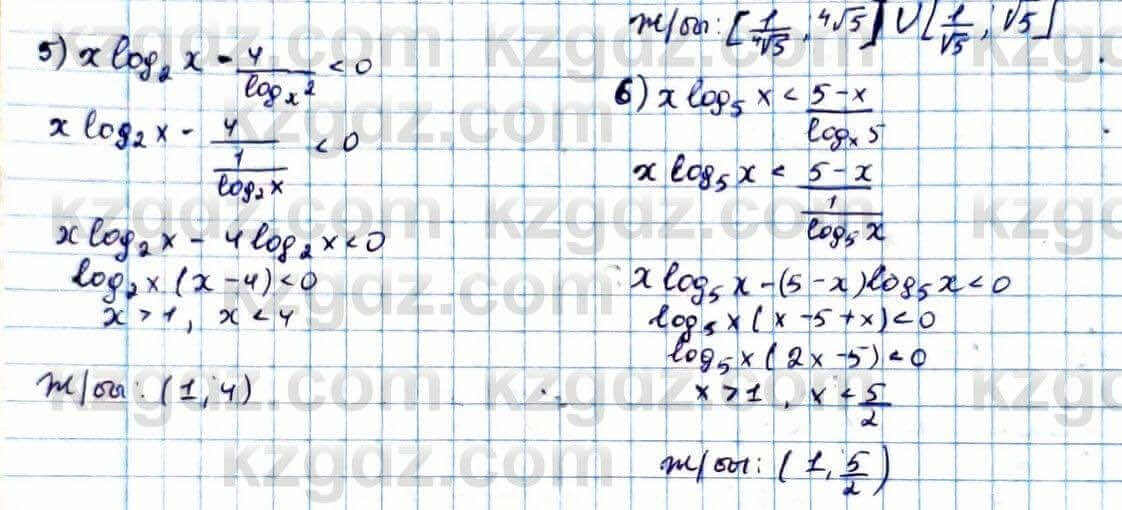 5) x log₂ x - 4/logₓ 2 < 0
x log₂ x - 4/(1/log₂ x) < 0
x log₂ x - 4 log₂ x < 0
log₂ x (x - 4) < 0
x > 1, x < 4
Ж/бы: (1, 4)
Ж/бы: [1/⁴√5, ⁴√5] ∪ [1/√5; √5]
6) x log₅ x < (5-x)/logₓ 5
x log₅ x < (5-x)/(1/log₅ x)
x log₅ x - (5-x) log₅ x < 0
log₅ x (x - 5 + x) < 0
log₅ x (2x - 5) < 0
x > 1, x < 5/2
ж/бы: (1, 5/2)
kzgdz.com